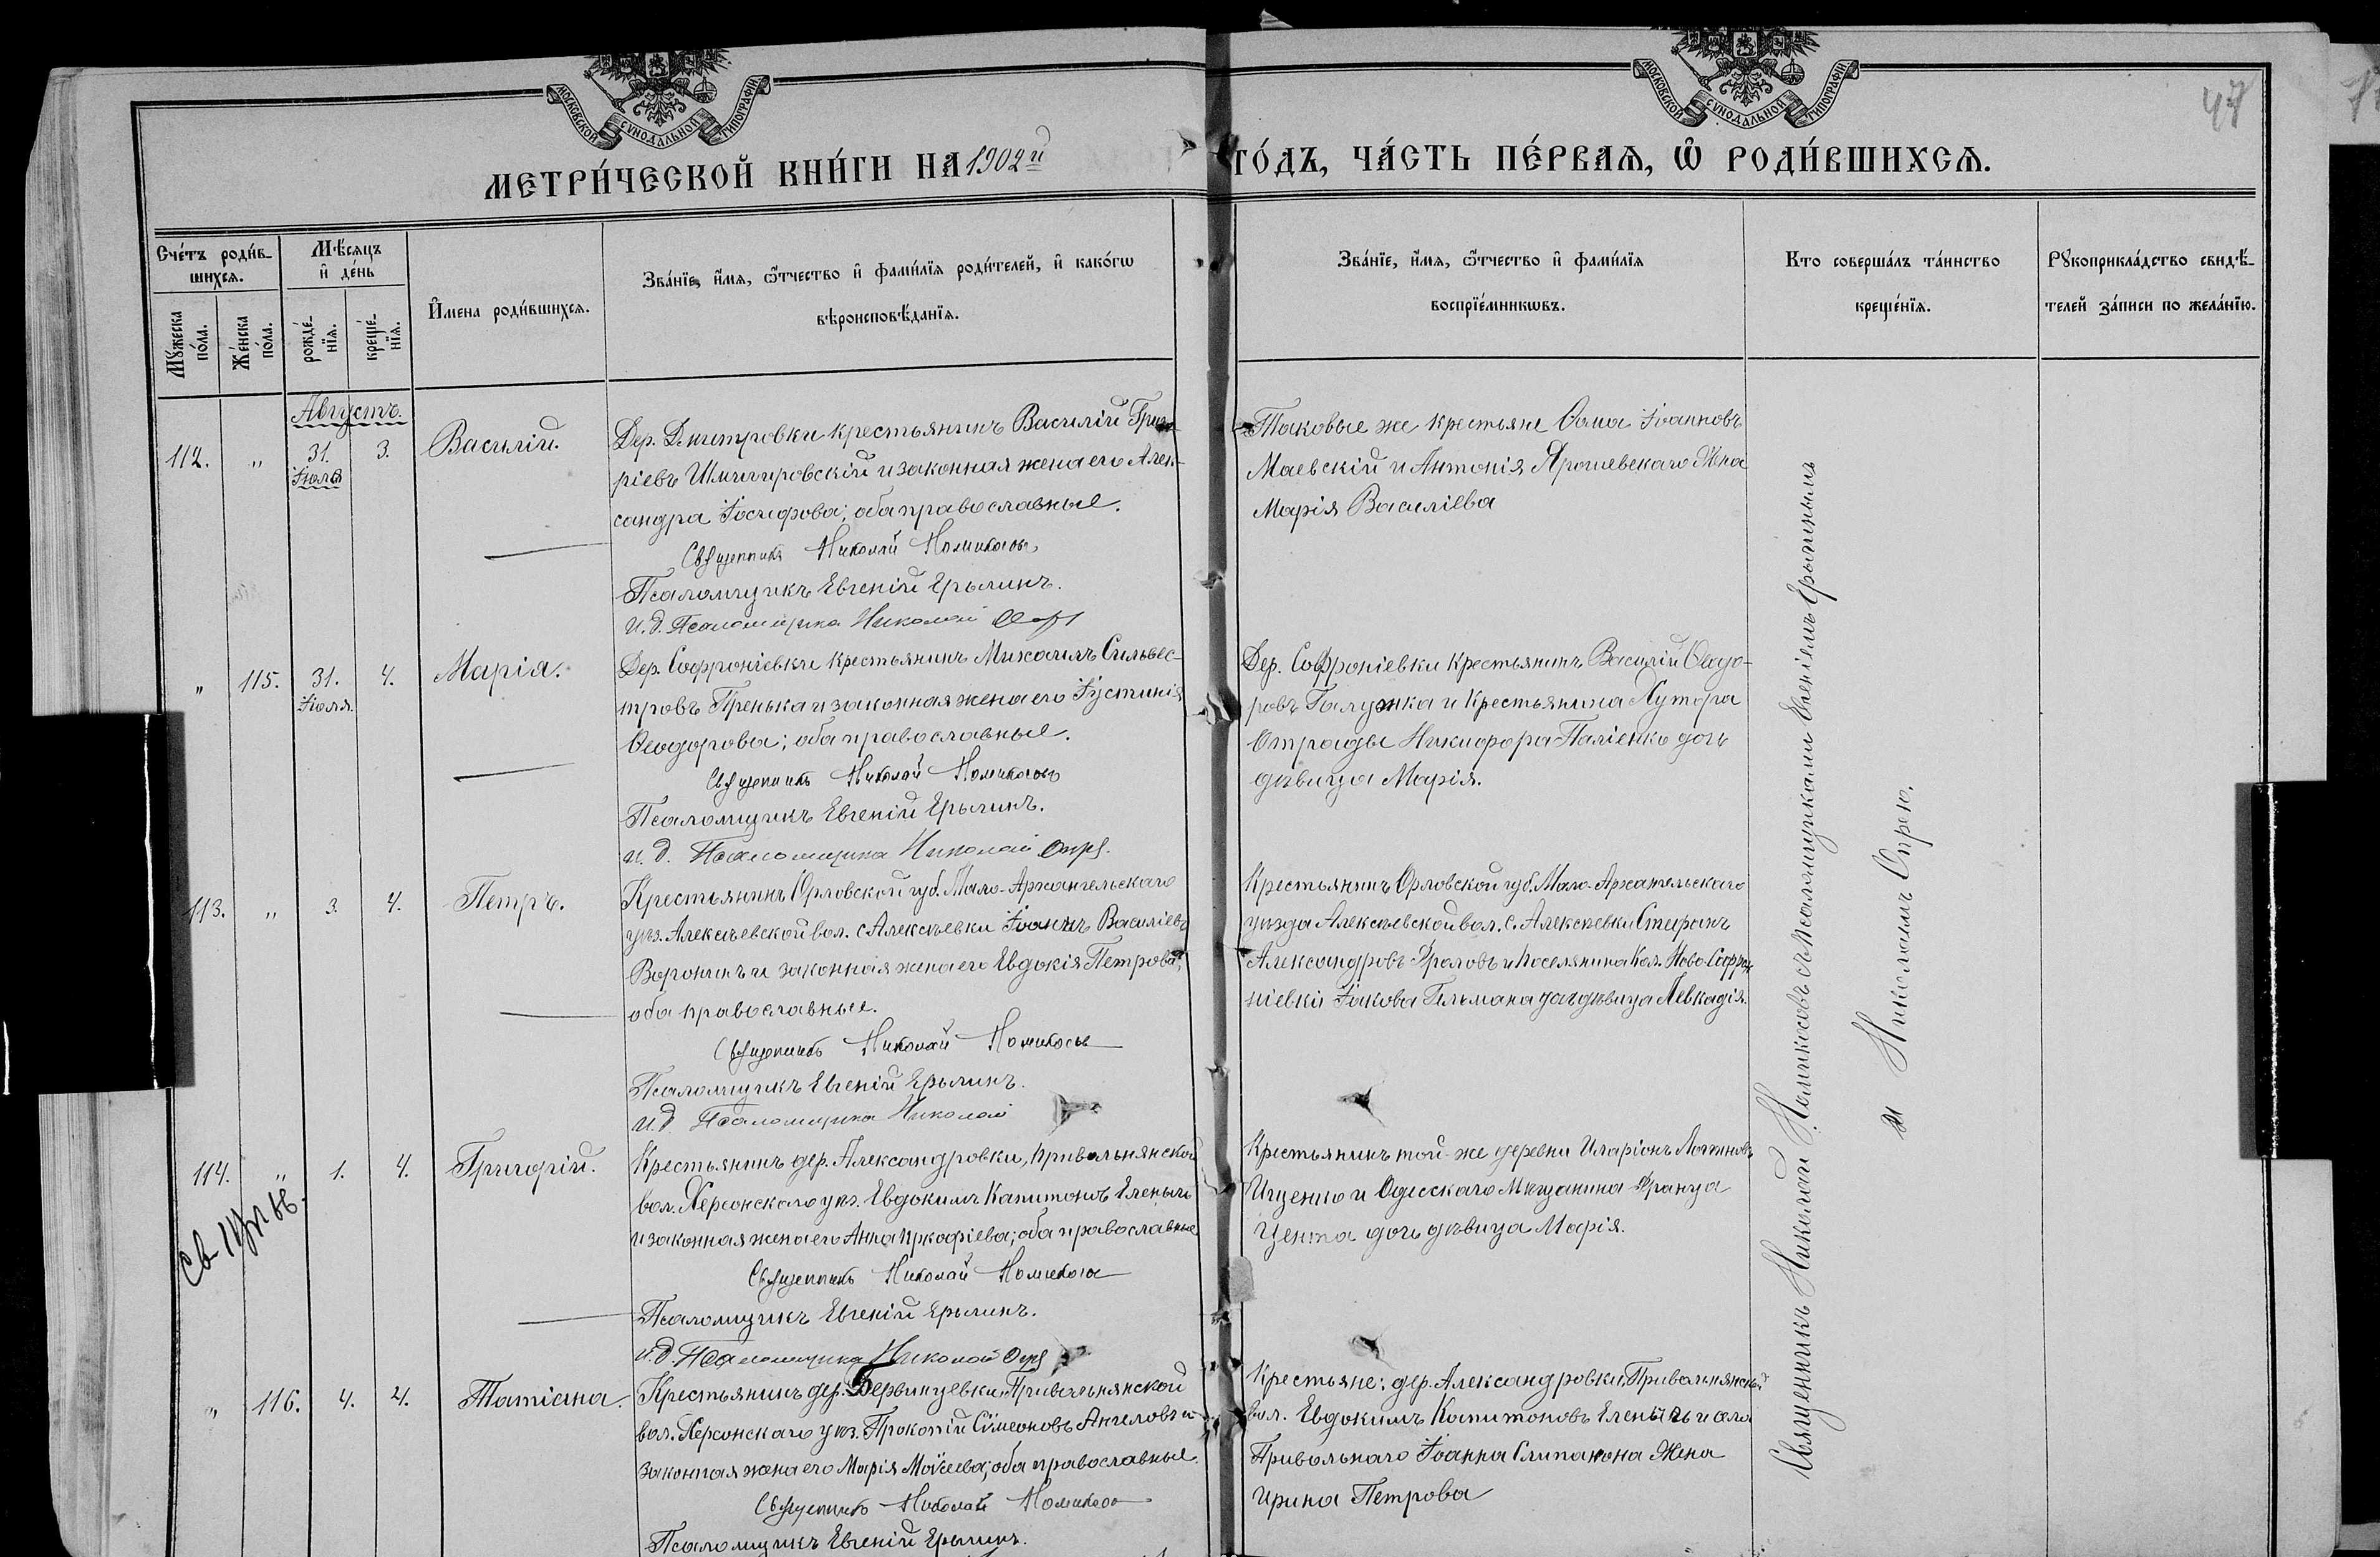 МОСКОВСКОЙ СУНОДАЛЬНОЙ ТИПОГРАФІИ
МОСКОВСКОЙ СУНОДАЛЬНОЙ ТИПОГРАФІИ
47
МЕТРИ́ЧЕСКОЙ КНИ́ГИ НА 1902й
ГО́ДЪ, ЧА́СТЬ ПЕ́РВАѦ, Ѽ РОДИ́ВШИХСѦ.
Сче́тъ роди́в-
шихся.
Мѣ́сяцъ
и҆ де́нь
Мꙋ́жеска
по́ла.
Же́нска
по́ла.
рожде́-
нїя.
креще́-
нїя.
И҆мена роди́вшихся.
Зва́нїе, и҆́мя, ѻ҆́тчество и҆ фами́лїя роди́телей, и҆ како́гѡ
вѣроисповѣ́данїя.
Зва́нїе, и҆́мя, ѻ҆́тчество и҆ фами́лїя
воспрїе́мникѡвъ.
Кто соверша́лъ та́инство
креще́нїя.
Рꙋкоприкла́дство свидѣ́-
телей за́писи по жела́нїю.
Августъ.
112. " 31. Іюля 3. Василій.
Дер. Дмитровки крестьянинъ Василій Григо-
ріевъ Шмигировскій и законная жена его Алек-
сандра Іосифова; оба православные.
Священникъ Николай Номикосовъ
Псаломщикъ Евгеній Ерылинъ.
и. д. Псаломщика Николай
Таковые же крестьяне Ѳома Іоанновъ
Маевскій и Антонія Ярошевскаго жена
Марія Василіева
" 115. 31. Іюля. 4. Марія.
Дер. Софроніевки крестьянинъ Михаилъ Сильвес-
тровъ Пренька и законная жена его Іустинія
Ѳеодорова; оба православные.
Священникъ Николай Номикосовъ
Псаломщикъ Евгеній Ерылинъ.
и. д. Псаломщика Николай Опря.
Дер. Софроніевки крестьянинъ Василій Ѳеодо-
ровъ Галушка и крестьянина Хутора
Отрады Никифора Паліенко дочь
дѣвица Марія.
113. " 3. 4. Петръ.
Крестьянинъ Орловской губ. Мало-Архангельскаго
уѣз. Алексѣевской вол. с. Алексѣевки Іоаннъ Василіевъ
Воронинъ и законная жена его Евдокія Петрова;
оба православные.
Священникъ Николай Номикосовъ
Псаломщикъ Евгеній Ерылинъ.
и. д. Псаломщика Николай
Крестьянинъ Орловской губ. Мало-Архангельскаго
уѣзда Алексѣевской вол. с. Алексѣевки Стефанъ
Александровъ Фроловъ и поселянина Кол. Ново-Софро-
ніевки Іакова Гильмана дочь дѣвица Левкадія.
114. " 1. 4. Григорій.
Крестьянинъ дер. Александровки, Привольнянской
вол. Херсонскаго уѣз. Евдокимъ Капитоновъ Еленычъ
и законная жена его Анна Пркофіева; оба православные
Священникъ Николай Номикосовъ
Псаломщикъ Евгеній Ерылинъ.
и. д. Псаломщика Николай Опря
Крестьянинъ той-же деревни Иларіонъ Логиновъ
Ищенко и Одесскаго Мѣщанина Франца
Цента дочь дѣвица Марія.
" 116. 4. 4. Татіана.
Крестьянинъ дер. Дервинцевки, Привольнянской
вол. Херсонскаго уѣз. Прокопій Сѵмеоновъ Ангеловъ и
законная жена его Марія Моѵсеева; оба православные.
Священникъ Николай Номикосовъ
Псаломщикъ Евгеній Ерылинъ.
Крестьяне: дер. Александровки, Привольнянской
вол. Евдокимъ Капитоновъ Еленычъ и села
Привольнаго Іоанна Слипакона жена
Ирина Петрова
Священникъ Николай Номикосовъ съ псаломщиками Евгеніемъ Ерылинымъ
и Николаемъ Опрею.